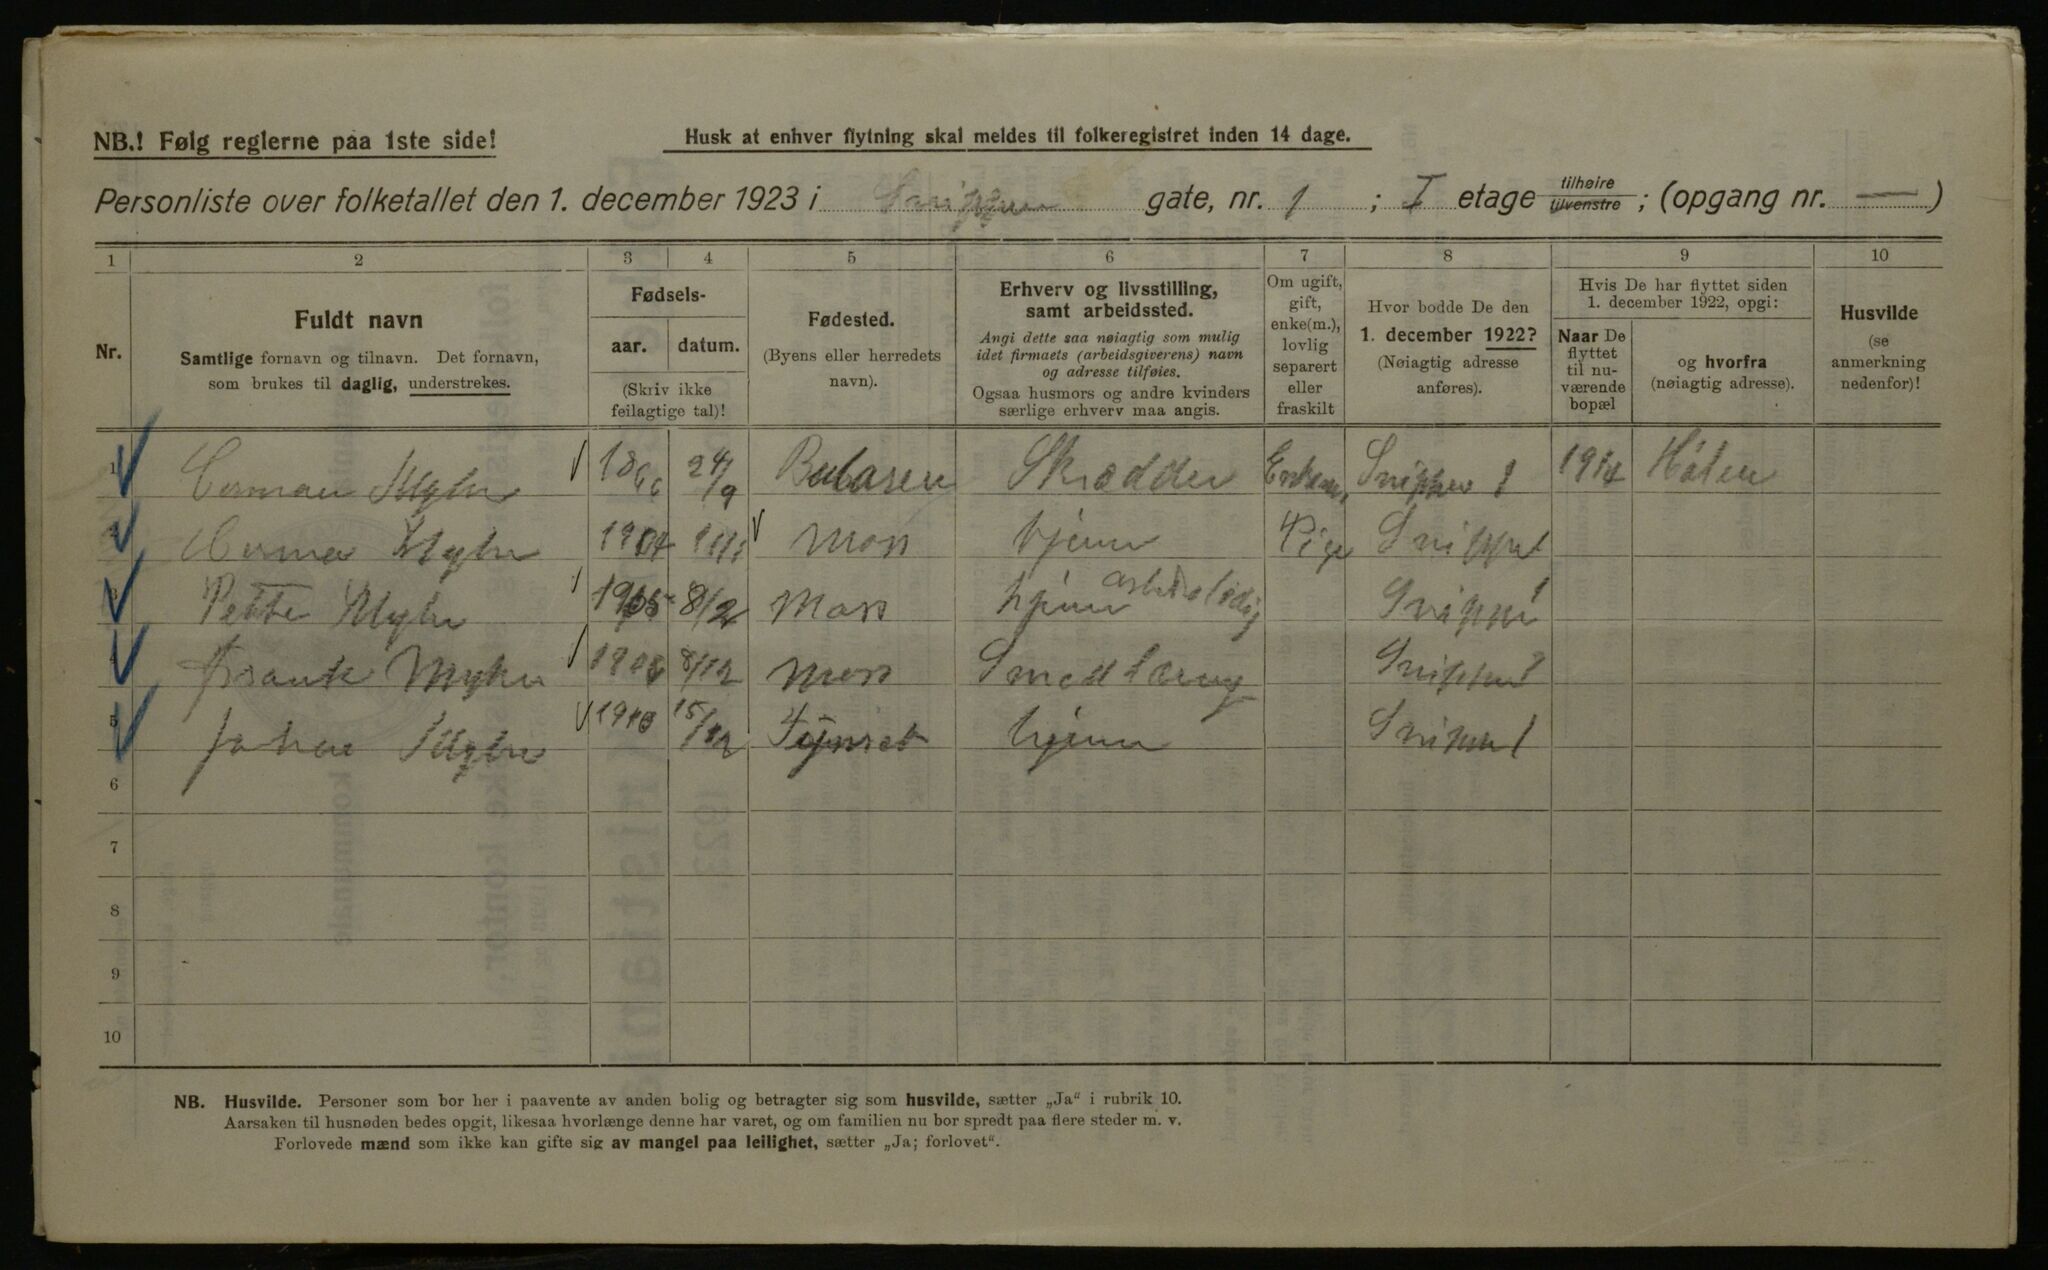 NB.! Følg reglerne paa 1ste side!
Husk at enhver flytning skal meldes til folkeregistret inden 14 dage.
Personliste over folketallet den 1. december 1923 i Snippen gate, nr. 1 ; I etage tilhøire tilvenstre ; (opgang nr. — )
1 2 3 4 5 6 7 8 9 10
Nr.
Fuldt navn
Samtlige fornavn og tilnavn. Det fornavn,
som brukes til daglig, understrekes.
Fødsels-
aar. datum.
(Skriv ikke
feilagtige tal)!
Fødested.
(Byens eller herredets
navn).
Erhverv og livsstilling,
samt arbeidssted.
Angi dette saa nøiagtig som mulig
idet firmaets (arbeidsgiverens) navn
og adresse tilføies.
Ogsaa husmors og andre kvinders
særlige erhverv maa angis.
Om ugift,
gift,
enke(m.),
lovlig
separert
eller
fraskilt
Hvor bodde De den
1. december 1922?
(Nøiagtig adresse
anføres).
Hvis De har flyttet siden
1. december 1922, opgi:
Naar De
flyttet
til nu-
værende
bopæl
og hvorfra
(nøiagtig adresse).
Husvilde
(se
anmerkning
nedenfor)!
1 Herman Myhre 1866 24/9 Skrædder Enkem. Snippen 1 1914 Hølen
2 Myhre 1904 Moss hjem Pige Snippen 1
3 Myhre 1905 8/2 Moss hjem arbeidsledig Snippen 1
4 Frank Myhre 1906 8/12 Moss Smedlæring Snippen 1
5 Johan Myhre 1910 15/12 Tynset hjem Snippen 1
6
7
8
9
10
NB. Husvilde. Personer som bor her i paavente av anden bolig og betragter sig som husvilde, sætter „Ja“ i rubrik 10.
Aarsaken til husnøden bedes opgit, likesaa hvorlænge denne har varet, og om familien nu bor spredt paa flere steder m. v.
Forlovede mænd som ikke kan gifte sig av mangel paa leilighet, sætter „Ja; forlovet“.